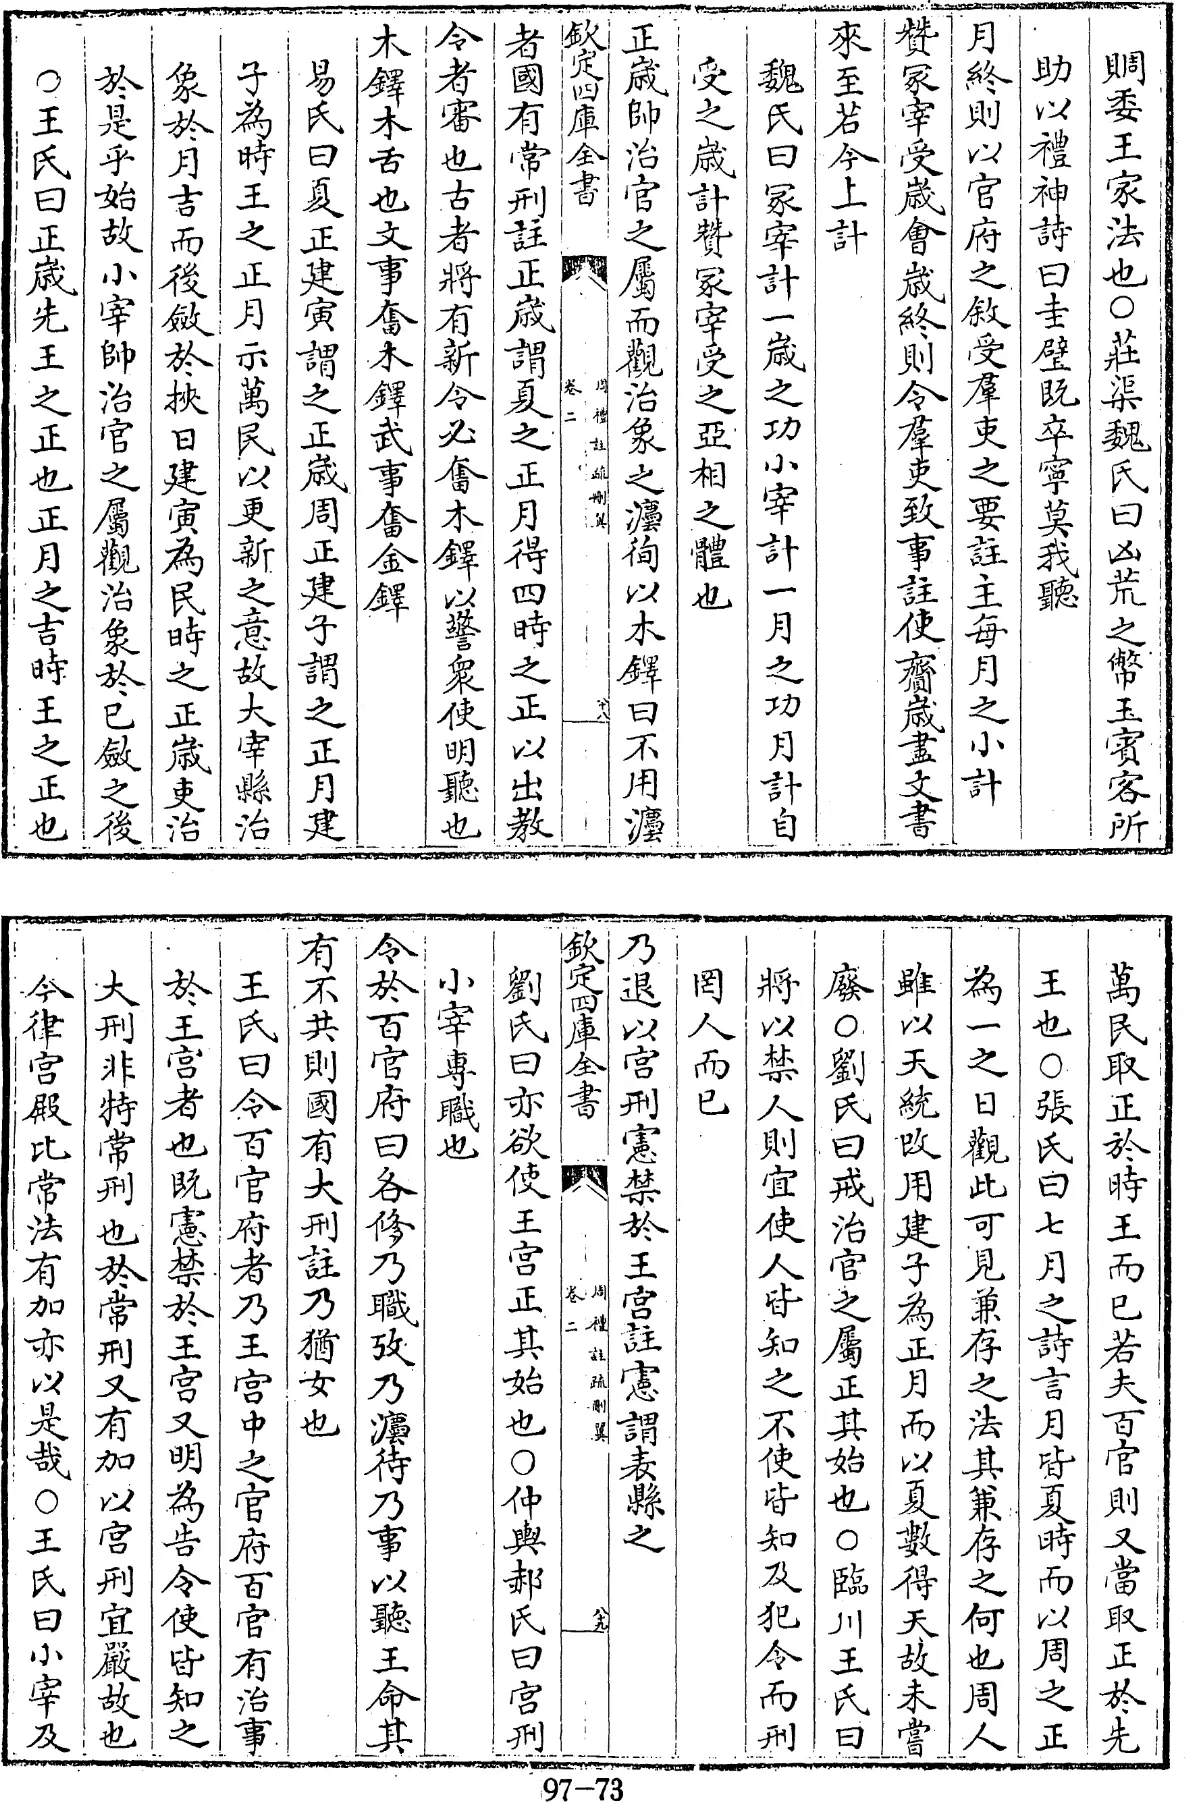 賙委王家法也○莊渠魏氏曰凶荒之幣玉賓客所
助以禮神詩曰圭璧既卒寧莫我聽
月終則以官府之敘受羣吏之要註主每月之小計
贊冢宰受歲會歲終則令羣吏致事註使齎歲盡文書
來至若今上計
魏氏曰冢宰計一歲之功小宰計一月之功月計自
受之歲計贊冢宰受之亞相之體也
正歲帥治官之屬而觀治象之灋徇以木鐸曰不用灋
欽定四庫全書
周禮註疏刪翼
卷二
六八
者國有常刑註正歲謂夏之正月得四時之正以出教
令者審也古者將有新令必奮木鐸以警衆使明聽也
木鐸木舌也文事奮木鐸武事奮金鐸
易氏曰夏正建寅謂之正歲周正建子謂之正月建
子為時王之正月示萬民以更新之意故大宰縣治
象於月吉而後斂於挾日建寅為民時之正歲吏治
於是乎始故小宰帥治官之屬觀治象於已斂之後
○王氏曰正歲先王之正也正月之吉時王之正也
萬民取正於時王而已若夫百官則又當取正於先
王也○張氏曰七月之詩言月皆夏時而以周之正
為一之日觀此可見兼存之法其兼存之何也周人
雖以天統改用建子為正月而以夏數得天故未嘗
廢○劉氏曰戒治官之屬正其始也○臨川王氏曰
將以禁人則宜使人皆知之不使皆知及犯令而刑
罔人而已
乃退以宮刑憲禁於王宮註憲謂表縣之
欽定四庫全書
周禮註疏刪翼
卷二
六九
劉氏曰亦欲使王宮正其始也○仲輿郝氏曰宮刑
小宰專職也
令於百官府曰各修乃職攷乃灋待乃事以聽王命其
有不共則國有大刑註乃猶女也
王氏曰令百官府者乃王宮中之官府百官有治事
於王宮者也既憲禁於王宮又明為告令使皆知之
大刑非特常刑也於常刑又有加以宮刑宜嚴故也
今律宮殿比常法有加亦以是哉○王氏曰小宰及
97-73